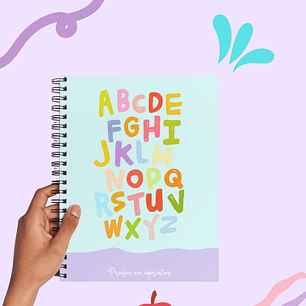 ABCDE
FGHI
JKLM
NOPQ
RSTUV
WXYZ
Profes en apuritos